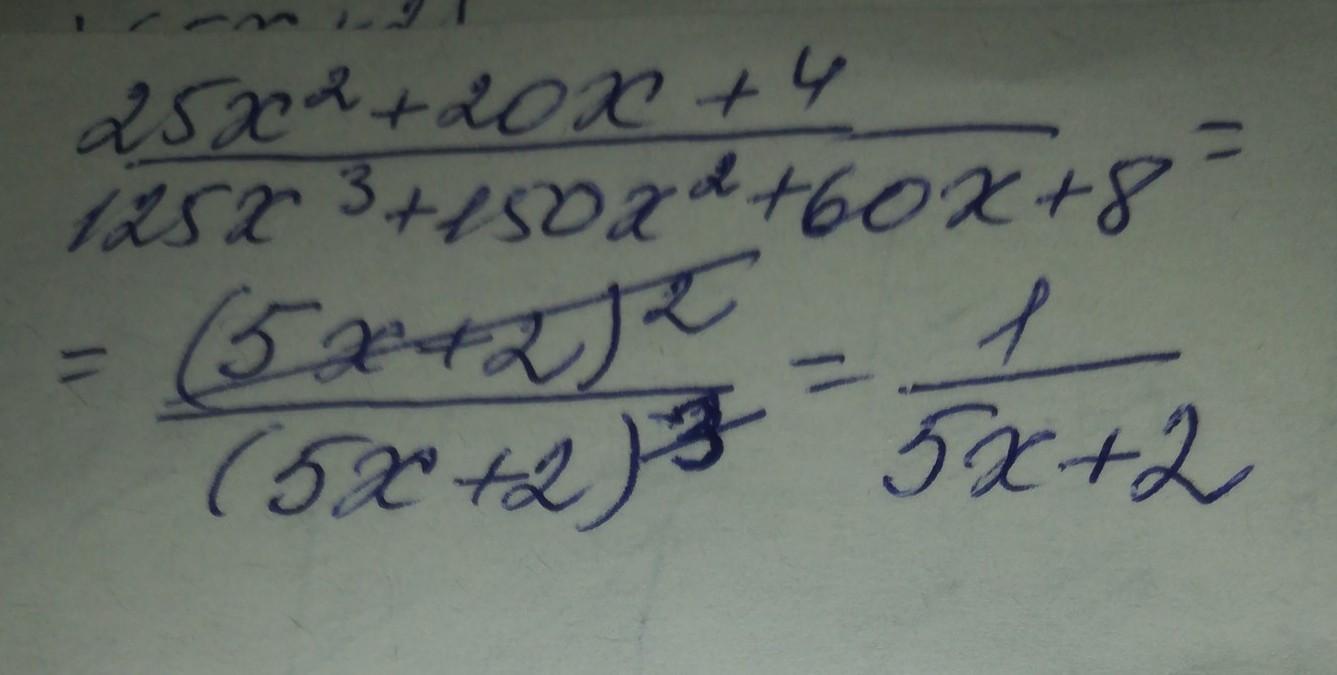 25x² + 20x + 4
125x³ + 150x² + 60x + 8 =
= (5x+2)² / (5x+2)³ = 1 / 5x+2